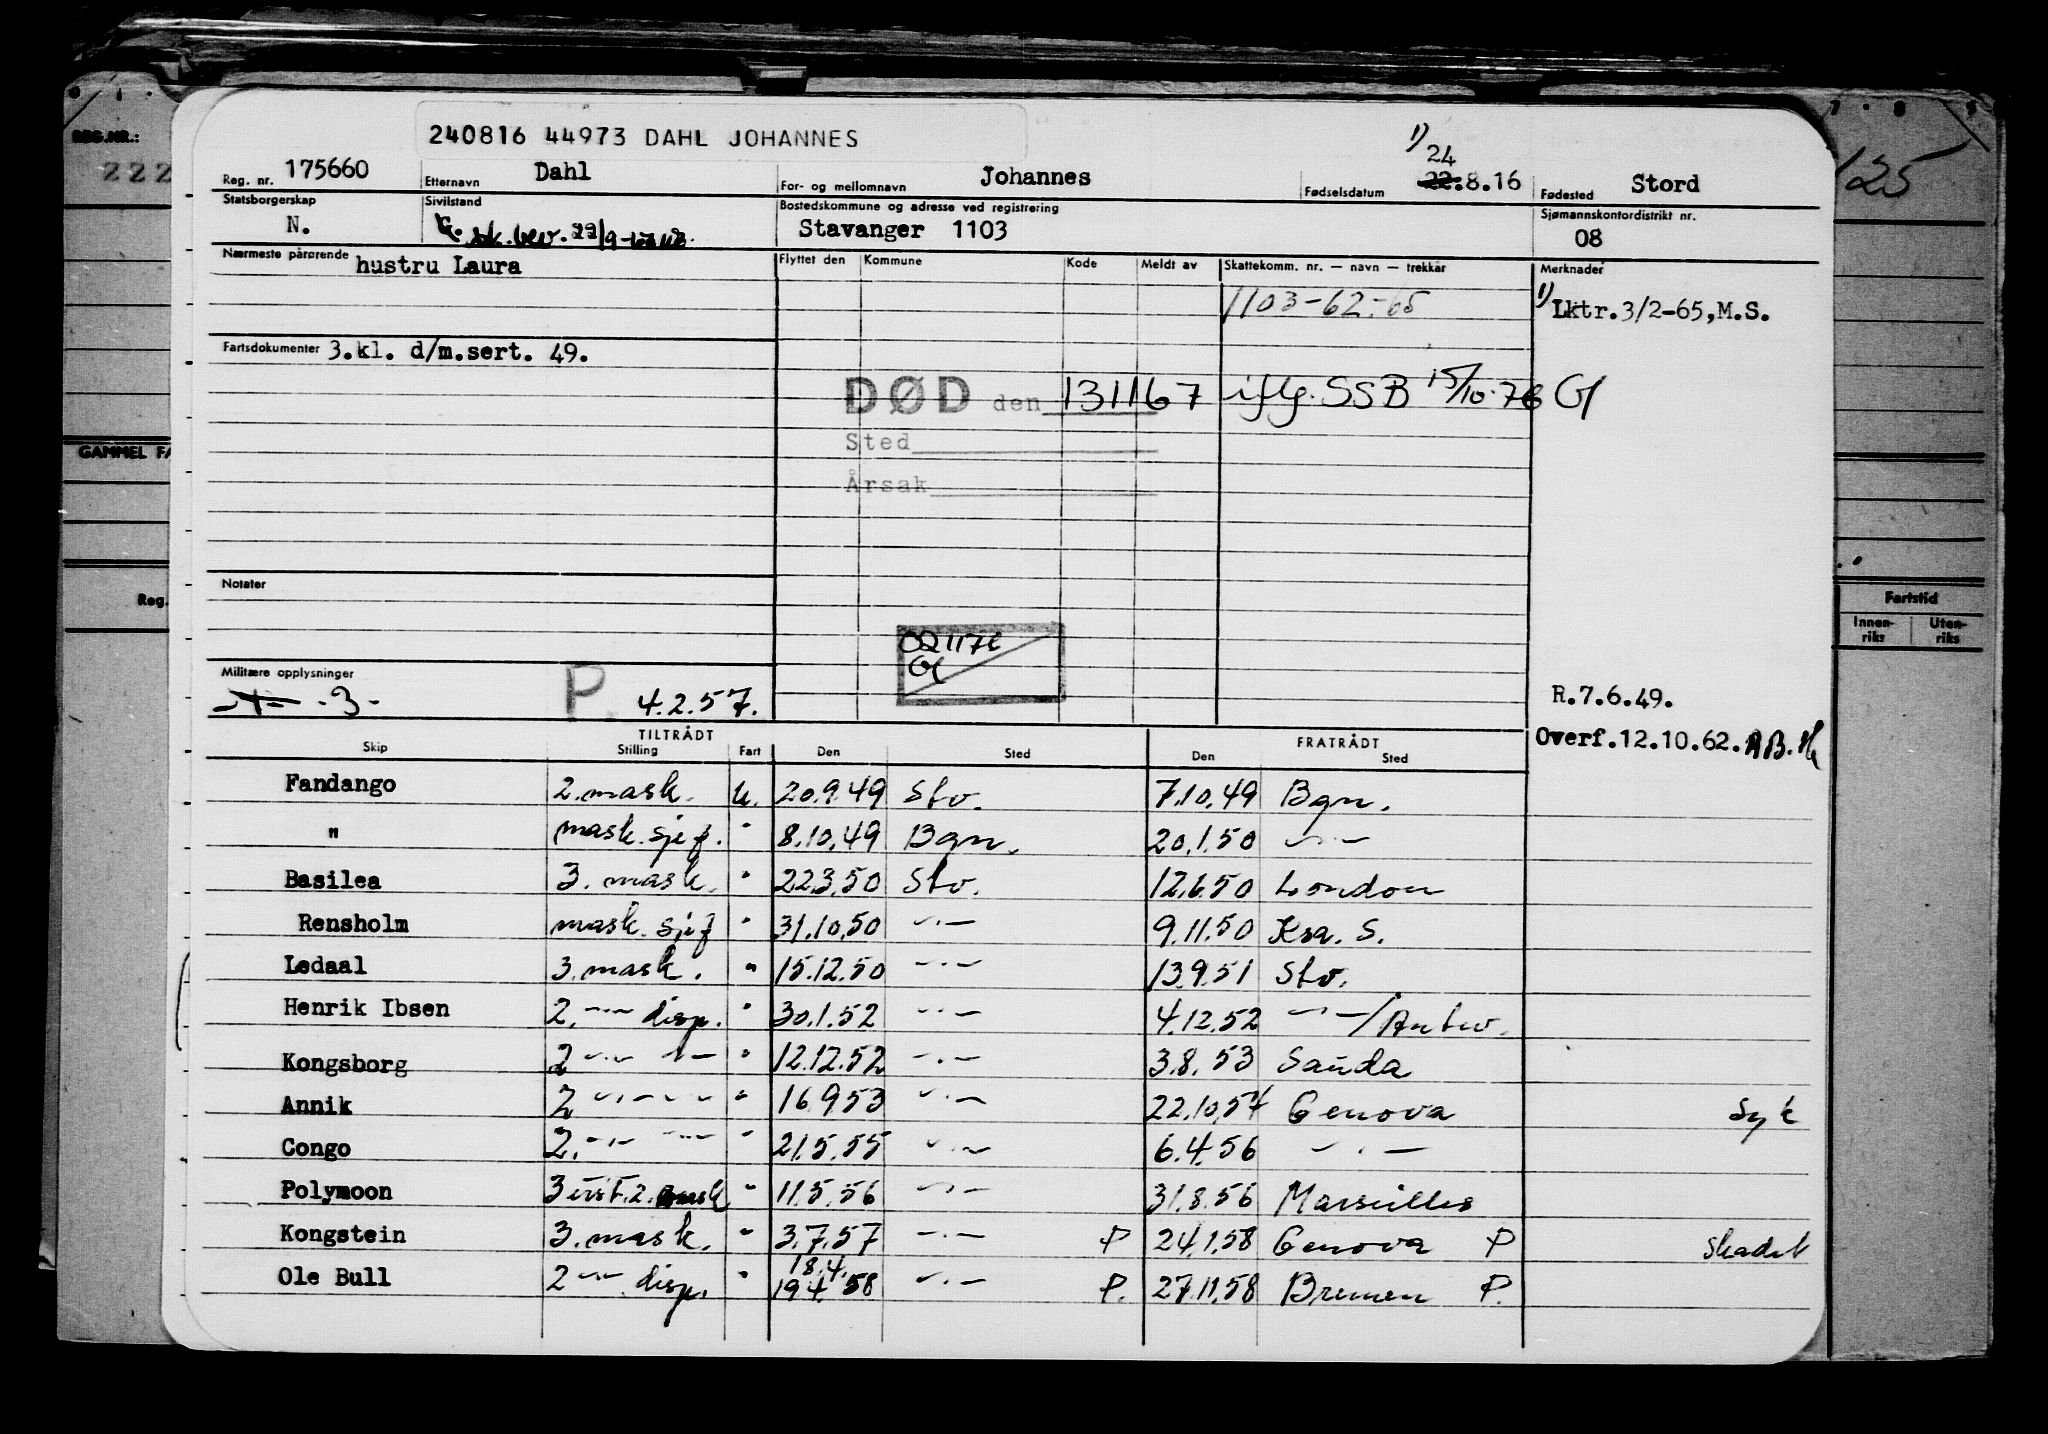 240816 44973 DAHL JOHANNES
1)
24
Reg. nr. 175660 Etternavn Dahl For- og mellomnavn Johannes Fødselsdatum 22.8.16 Fødested Stord
Statsborgerskap Sivilstand Bostedskommune og adresse ved registrering Sjømannskontordistrikt nr.
N. G. Stavanger 1103 08
Nærmeste pårørende hustru Laura Flyttet den Kommune Kode Meldt av Skattekomm. nr. — navn — trekkår Merknader
1103-62-65 1) Lktr.3/2-65,M.S.
Fartsdokumenter 3.kl. d/m.sert. 49.
DØD den 131167 iflg. SSB 15/10.76 Gf
Sted
Årsak
Notater
Militære opplysninger P 4.2.57.
-3-
R.7.6.49.
Overf.12.10.62.
TILTRÅDT FRATRÅDT
Skip Stilling Fart Den Sted Den Sted
Fandango 2.mask. u. 20.9.49 Stv. 7.10.49 Bgn.
" mask.sjef. " 8.10.49 Bgn. 20.1.50 —"—
Basilea 3. mask. " 22.3.50 Stv. 12.6.50 London
Rensholm mask.sjef " 31.10.50 —"— 9.11.50 Krs. S.
Ledaal 3.mask. " 15.12.50 —"— 13.9.51 Stv.
Henrik Ibsen 2.—"— disp. " 30.1.52 —"— 4.12.52 —"—/Antw.
Kongsborg 2 —"— —"— " 12.12.52 —"— 3.8.53 Sauda
Annik 2 —"— —"— " 16.9.53 —"— 22.10.54 Genova Syk
Congo 2.—"— —"— " 21.5.55 —"— 6.4.56 —"—
Polymoon " 11.5.56 —"— 31.8.56 Marseilles
Kongstein 3.mask. " 3.7.57 —"— P 24.1.58 Genova P Skadet
18.4.
Ole Bull 2 —"— disp. " 19.4.58 —"— P. 27.11.58 Bremen P.
REG.NR.:
222
GAMMEL
Reg.
125
Fartstid
Innenriks Utenriks